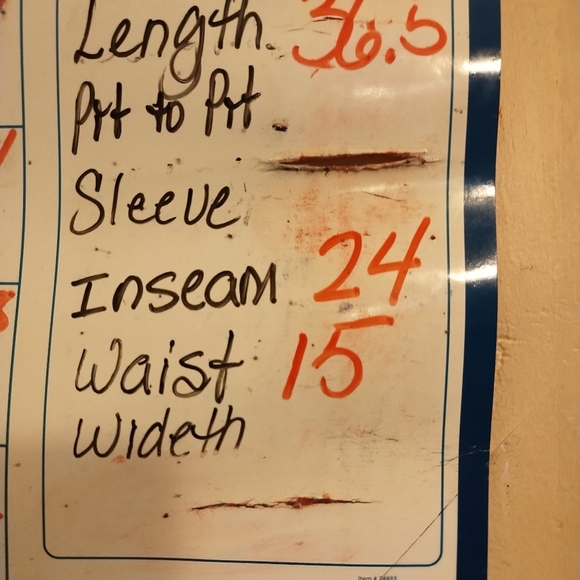 Length 36.5
Pit to Pit
Sleeve
Inseam 24
Waist 15
Wideth
Item # 24933